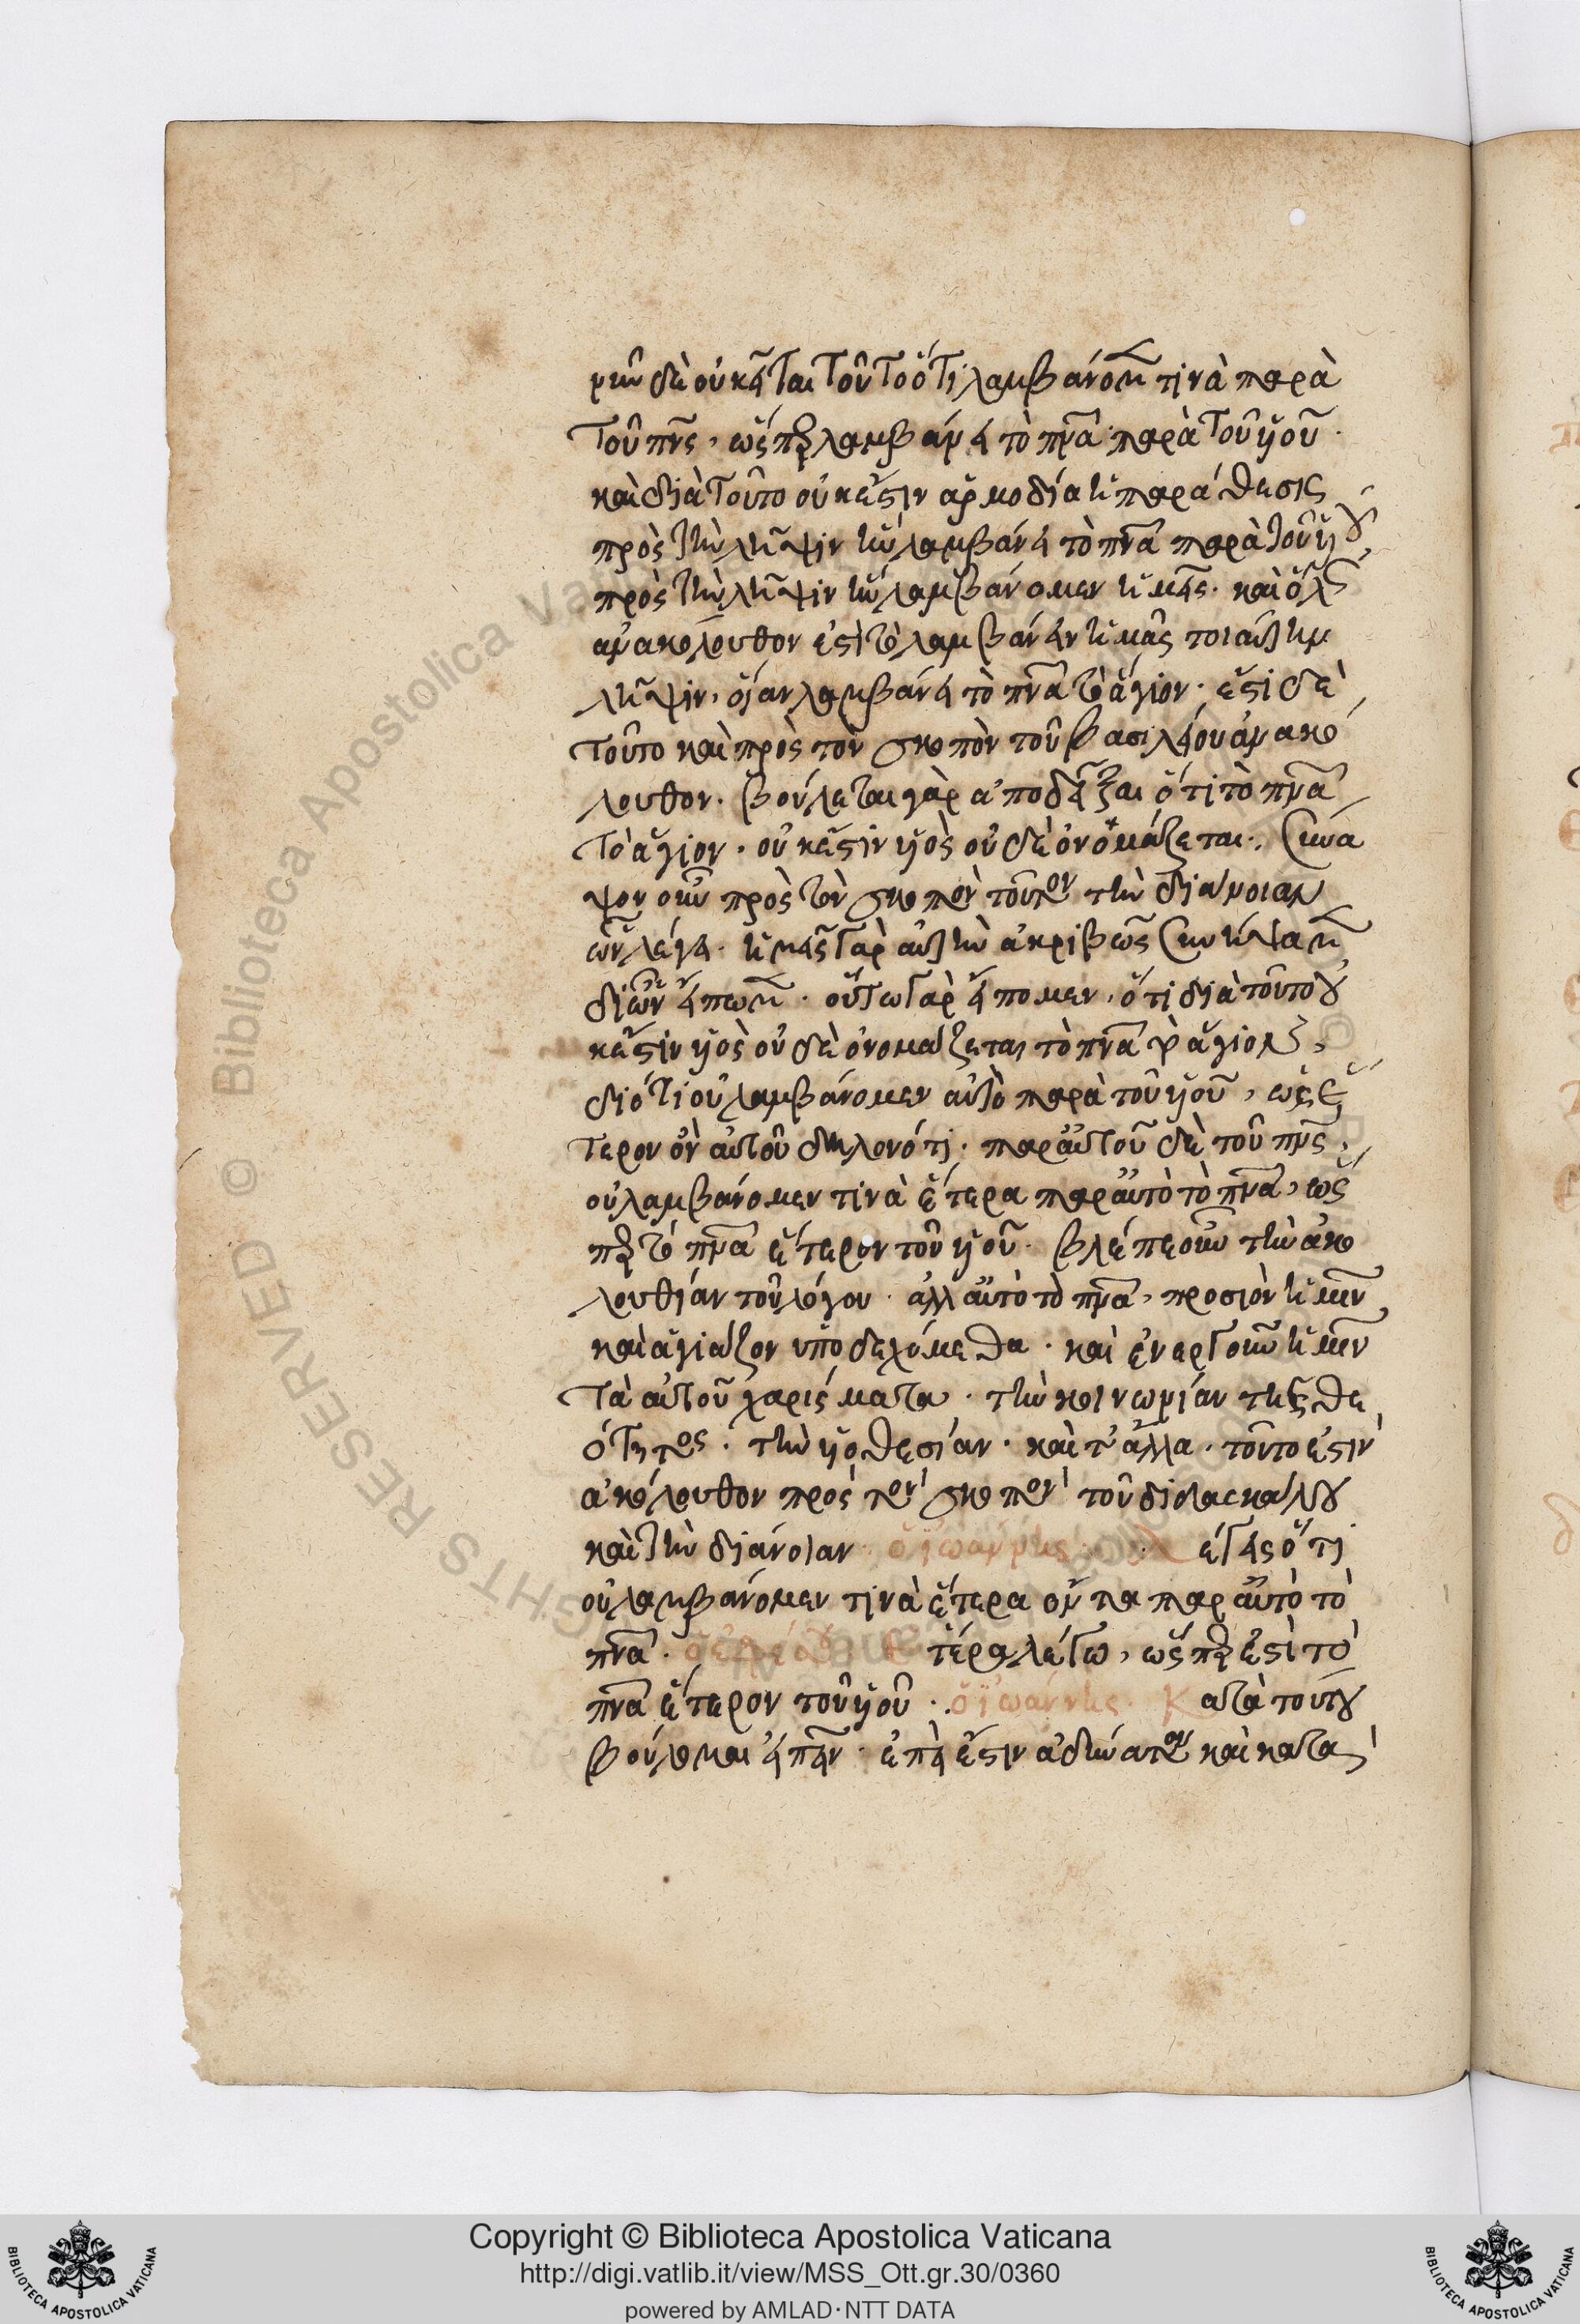 ρῶν δὲ οὐ κεῖται τοῦτο ὅτι λαμβάνομεν τινὰ παρὰ
τοῦ πνς, ὥσπερ λαμβάνει τὸ πνα παρὰ τοῦ υἱοῦ.
καὶ διὰ τοῦτο οὐκ ἔστιν ἁρμοδία ἡ παράθεσις
πρὸς τὴν λῆψιν ἣν λαμβάνει τὸ πνα παρὰ τοῦ υἱοῦ
πρὸς τὴν λῆψιν ἣν λαμβάνομεν ἡμεῖς. καὶ ὅλως
ἀνακόλουθον ἐστὶ τὸ λαμβάνειν ἡμᾶς τοιαύτην
λῆψιν, οἵαν λαμβάνει τὸ πνα τὸ ἅγιον. ἔστι δὲ
τοῦτο καὶ πρὸς τὸν σκοπὸν τοῦ βασιλείου ἀνακό
λουθον. βούλεται γὰρ ἀποδεῖξαι ὅτι τὸ πνα
τὸ ἅγιον. οὐκ ἔστιν υἱὸς οὐδὲ ὀνομάζεται. σύνα
ψον οὖν πρὸς τὸν σκοπὸν τοῦτον τὴν διάνοιαν
ὧν λέγει. ἡμεῖς γὰρ αὐτὴν ἀκριβῶς συνήψαμεν
δι ὧν εἴπωμεν. οὕτω γὰρ εἴπομεν, ὅτι διὰ τοῦτο οὐ
κ ἔστιν υἱὸς οὐδὲ ὀνομάζεται τὸ πνα τὸ ἅγιον,
διότι οὐ λαμβάνομεν αὐτὸ παρὰ τοῦ υἱοῦ, ὡς ἕ
τερον ὂν αὐτοῦ δηλονότι. παρ αὐτοῦ δὲ τοῦ πνς,
οὐ λαμβάνομεν τινὰ ἕτερα παρ αὐτὸ τὸ πνα, ὥσ
περ τὸ πνα ἕτερον τοῦ υἱοῦ. βλέπε οὖν τὴν ἀκο
λουθίαν τοῦ λόγου. ἀλλ αὐτὸ τὸ πνα, προσιὸν ἡμῖν
καὶ ἁγιάζον ὑποδεχόμεθα. καὶ ἐνεργοῦν ἡμῖν
τὰ αὐτοῦ χαρίσματα. τὴν κοινωνίαν τῆς θε
ότητος. τὴν υἱοθεσίαν. καὶ τ ἄλλα. τοῦτο ἐστὶν
ἀκόλουθον πρὸς τὸν σκοπὸν τοῦ διδασκάλου
καὶ τὴν διάνοιαν ὁ ἰωάννης λέγεις ὅτι
οὐ λαμβάνομεν τινὰ ἕτερα ὄντα παρ αὐτὸ τὸ
πνα. ὁ ἐφέσου Ἕτερα λέγω, ὥσπερ ἐστὶ τὸ
πνα ἕτερον τοῦ υἱοῦ. ὁ ἰωάννης. Κατὰ τούτου
βούλομαι εἰπεῖν. ἐπεὶ ἔστιν ἀδύνατον καὶ κατασ